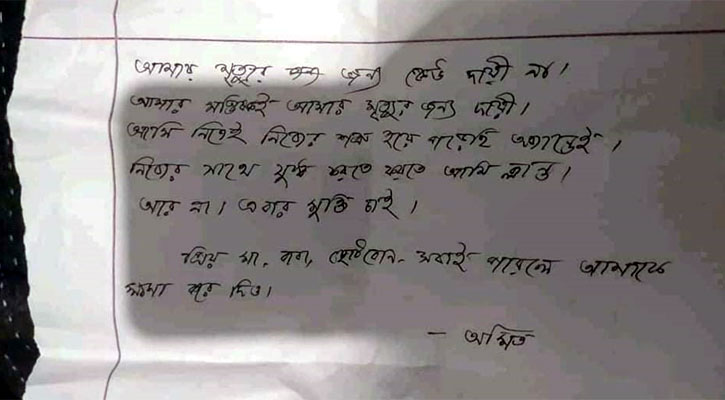 আমার মৃত্যুর জন্য কেউ দায়ী না।
আমার মস্তিষ্কই আমার মৃত্যুর জন্য দায়ী।
আমি নিজেই নিজের শত্রু হয়ে পড়েছি অজান্তেই।
নিজের সাথে যুদ্ধ করতে করতে আমি ক্লান্ত।
আর না। এবার মুক্তি চাই।
প্রিয় মা, বাবা, ছোটবোন- সবাই পারলে আমাকে
ক্ষমা করে দিও।
— অমিত